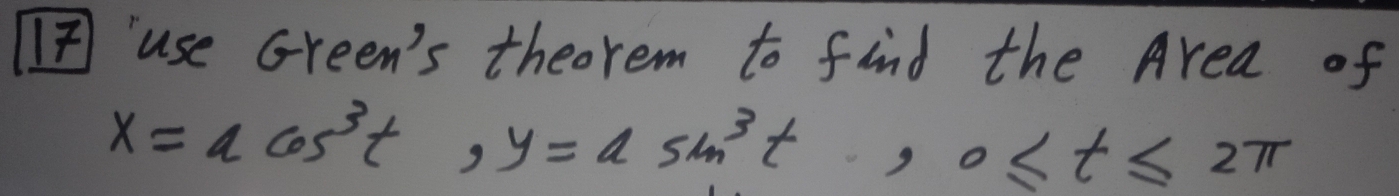 17 "use Green's theorem to find the Area of
x = a cos³t , y = a sin³t , 0 ≤ t ≤ 2π